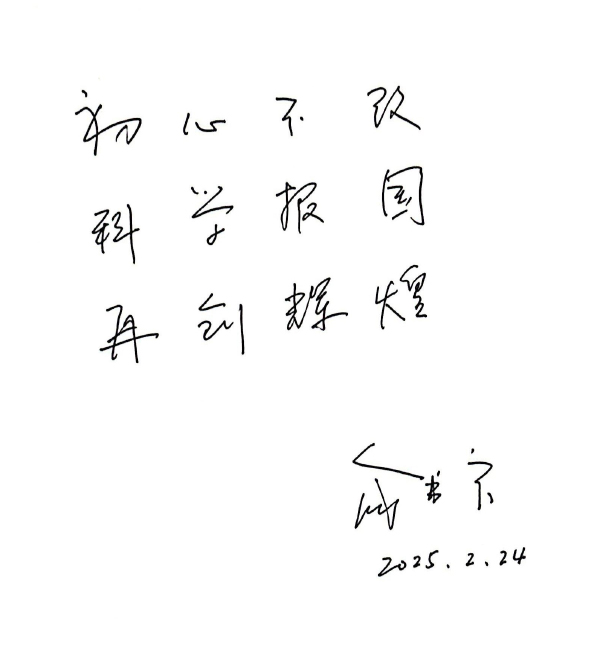 初心不改
科学报国
再创辉煌
俞书宏
2025.2.24